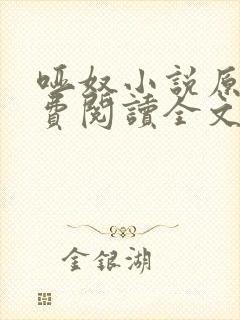 啞奴小説原
費閱讀全文
金銀湖